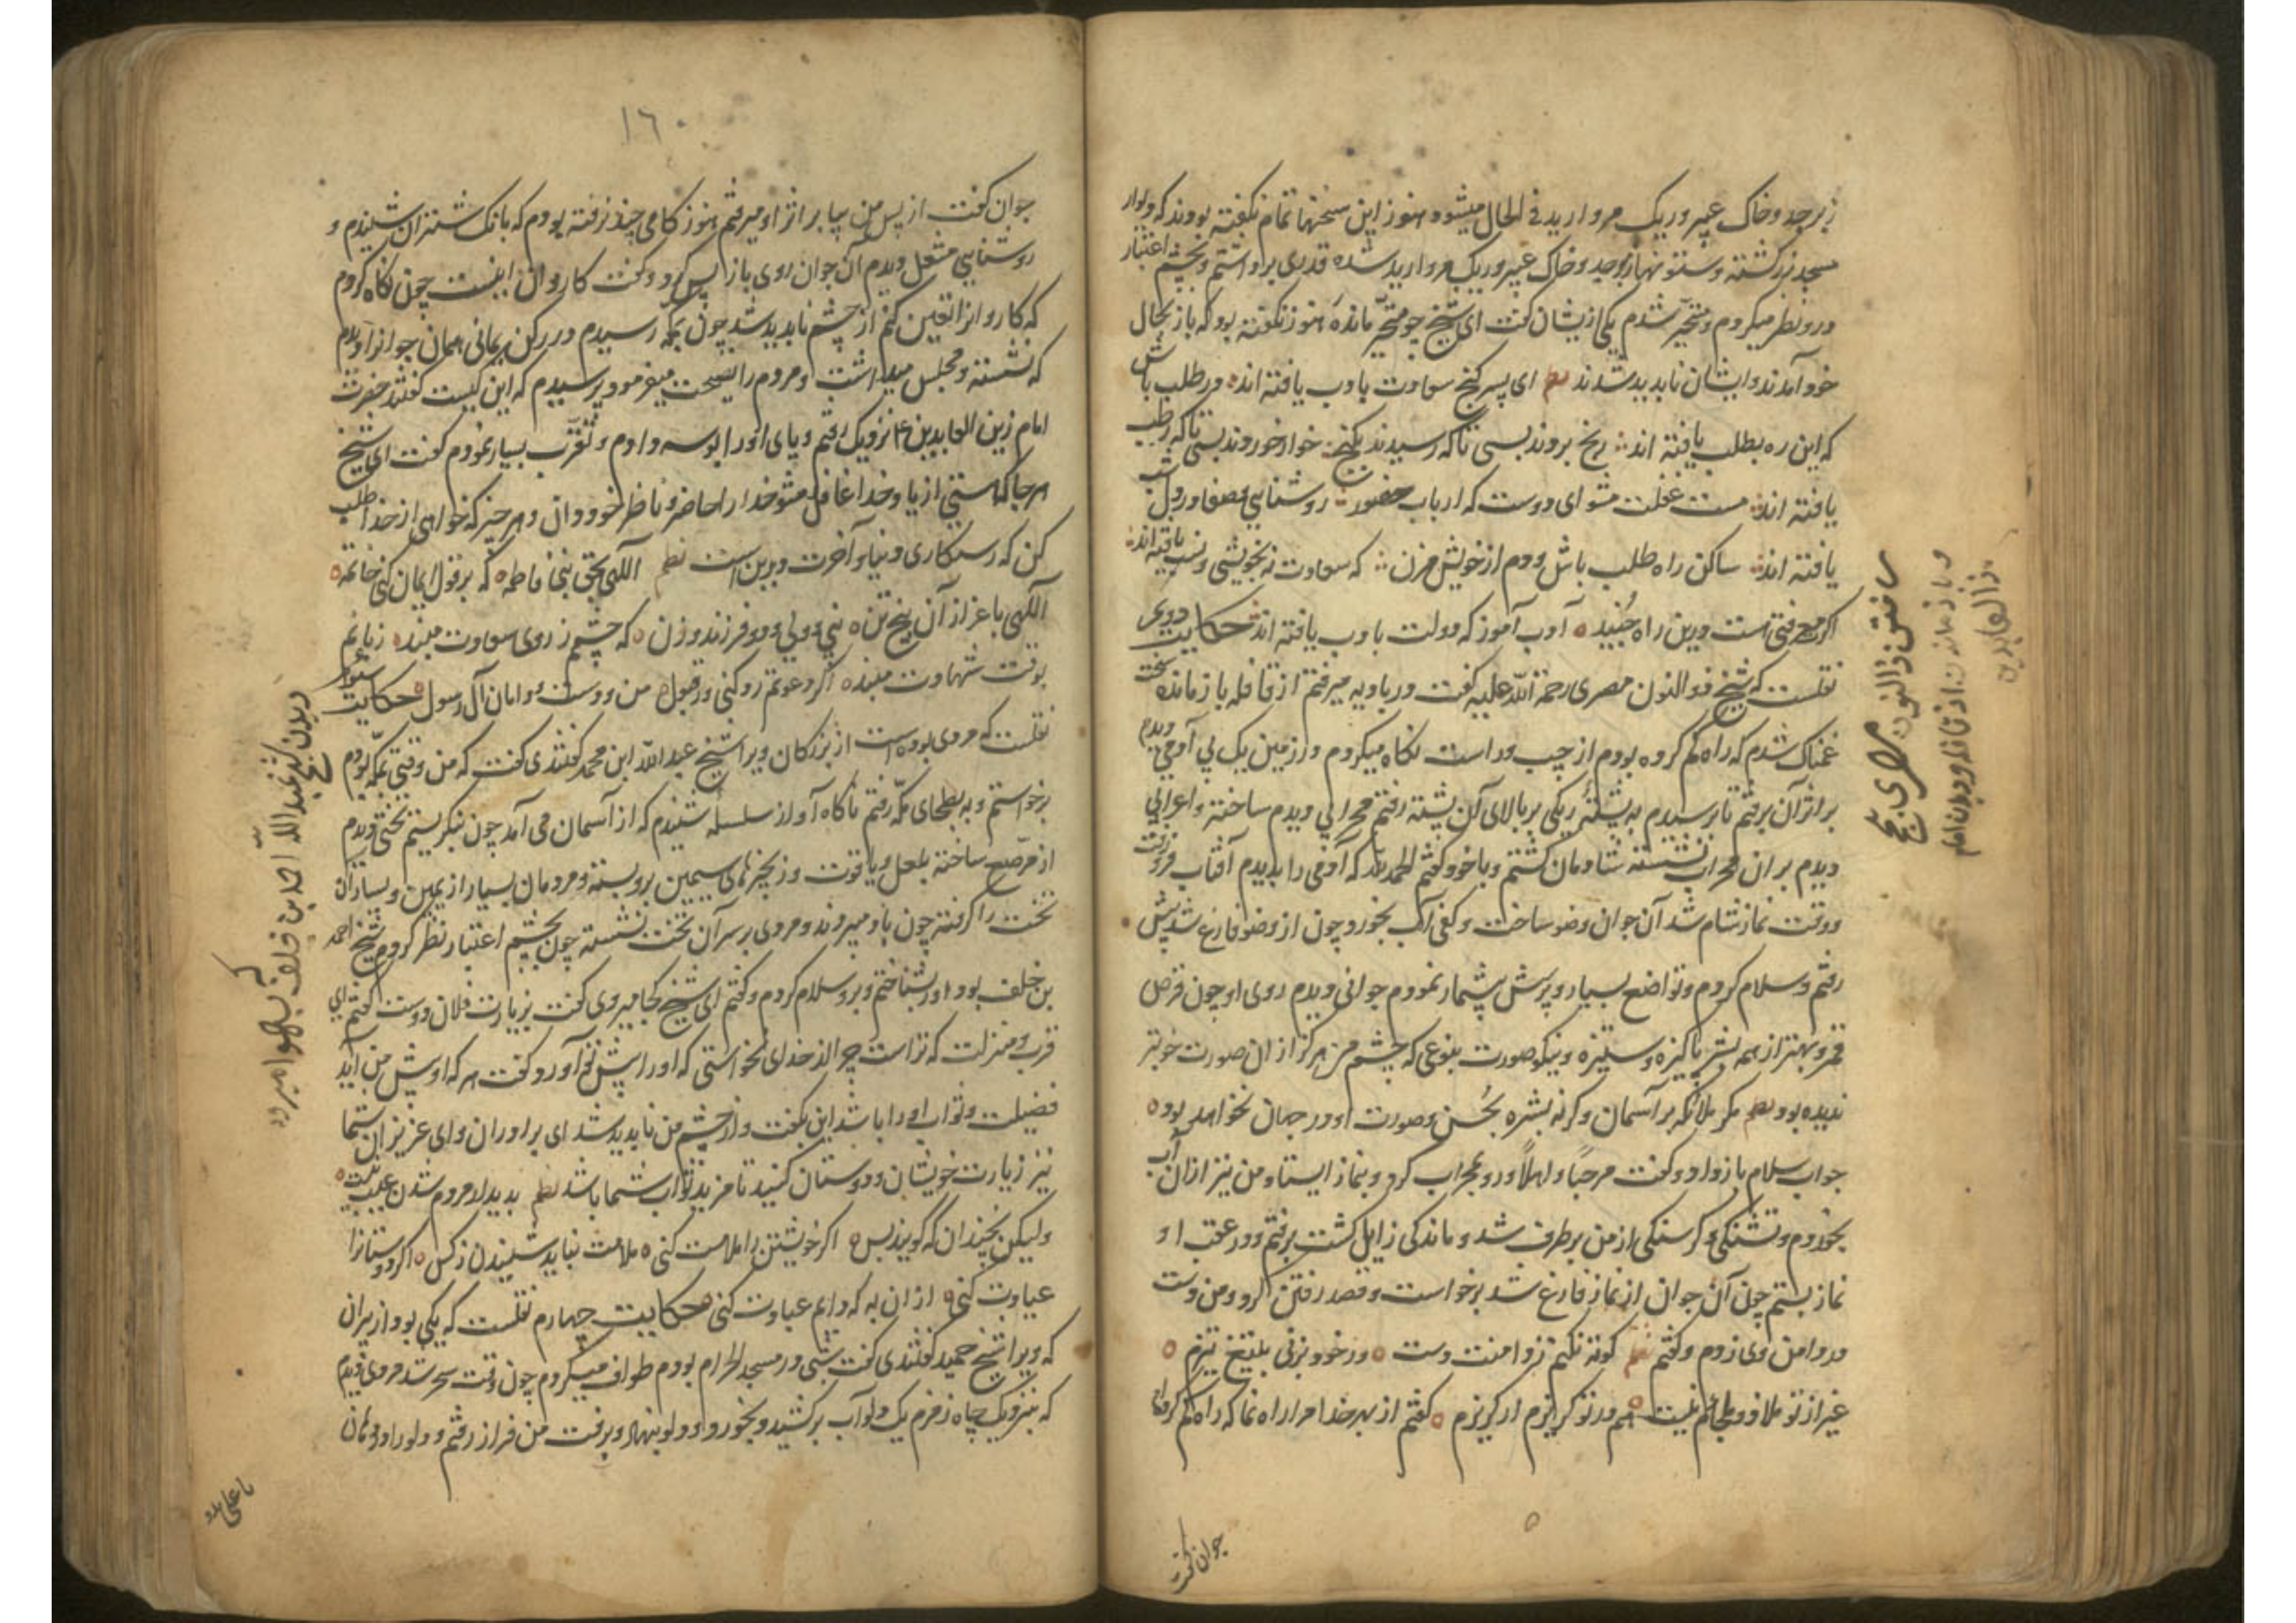 زبرجد و خاک عبیر و ریک مروارید فی الحال میشود هنوز این سخنها تمام نکفته بودند که دیوار
مسجد زر کشته و ستونها زبرجد و خاک عبیر و ریک مروارید شده قدری برداشتم و بچشم اعتبار
درو نظر میکردم و متحیر شدم یکی ازیشان کفت ای شیخ چو متحیر مانده هنوز نکفته بود که باز بحال
خود آمدند و ایشان ناپدید شدند نظم ای پسر کنج سعادت بادب یافته اند در طلب باش
که این ره بطلب یافته اند رنج بردند بسی تا که رسیدند بکنج خوار خوردند بسی تا که رطب
یافته اند مست غفلت مشو ای دوست که ارباب حضور روشنایی و صفا در دل شب
یافته اند ساکن راه طلب باش و دم از خویش مزن که سعادت نه بخویشی و نسب یافته اند
اکر معرفتی هست درین راه جنید ادب آموز که دولت بادب یافته اند حکایت دویم
نقلست که شیخ ذو النون مصری رحمة الله علیه کفت در بادیه میرفتم از قافله باز مانده سخت
غمناک شدم که راه کم کرده بودم از چپ و راست نکاه میکردم در زمین یک پی آدمی دیدم
بر اثر آن برفتم تا برسیدم به پشته ریکی بر بالای آن پشته رفتم محرابی دیدم ساخته و اعرابی
دیدم بر ان محراب نشسته شادمان کشتم و با خود کفتم الحمد لله که آدمی را بدیدم آفتاب فرو رفت
و وقت نماز شام شد آن جوان وضو ساخت و کفی آب بخورد و چون از وضو فارغ شد پیش
رفتم و سلام کردم و تواضع بسیار و پرسش بیشمار نمودم جوانی دیدم روی او چون قرص
قمر و بهتر از همه بشر پاکیزه و ستیزه و نیکو صورت بنوعی که چشم من هرکز از ان صورت خوبتر
ندیده بود نظم مکر ملائکه بر آسمان وکرنه بشره بحسن و صورت او در جهان نخواهد بود
جواب سلام باز داد و کفت مرحبا و اهلا و رو بمحراب کرد و بنماز ایستاد و من نیز ازان آب
بخوردم و تشنکی و کرسنکی از من برطرف شد و ماندکی زایل کشت برفتم و در عقب او
نماز بستم چون آن جوان از نماز فارغ شد برخواست و قصد رفتن کرد و من دست
در دامن وی زدم و کفتم نظم کوته نکنم ز دامنت دست ور خود بزنی بتیغ تیزم
غیر از تو ملاذ و ملجائم نیست هم در تو کریزم ار کریزم کفتم از بهر خدا مرا راه نما که راه کم کرده‌ام
جوان کفت
ساختن ذالنون مصری حج
و باز ماندن از قافله و دیدن امام
زین العابدین
۱۶۰
جوان کفت از پس من بیا بر اثر او میرفتم هنوز کامی چند نرفته بودم که بانک شتران شنیدم و
روشنایی مشعل دیدم آن جوان روی باز پس کرد و کفت کاروان اینست چون نکاه کردم
که کاروانرا تعین کنم از چشم ناپدید شد چون بمکه رسیدم در رکن یمانی همان جوانرا دیدم
که نشسته و مجلس میداشت و مردم را نصیحت میفرمود پرسیدم که این کیست کفتند حضرت
امام زین العابدین ۴ نزدیک رفتم و پای او را بوسه دادم و تقرب بسیار نمودم کفت ای شیخ
هر جا که هستی از یاد خدا غافل مشو خدا را حاضر و ناظر خود دان و هر چیز که خواهی از خدا طلب
کن که رستکاری دنیا و آخرت درین است نظم الهی بحق بنی فاطمه که بر قول ایمان کنی خاتمه
الهی باعزاز آن پنج تن نبی و ولی و دو فرزند و زن که چشمم ز روی سعادت مبند زبانم
بوقت شهادت مبند اکر دعوتم رد کنی ور قبول من و دست و دامان آل رسول حکایت سیوم
نقلست که مردی بوده است از بزرکان ویرا شیخ عبد الله ابن محمد کفتندی کفت که من وقتی بمکه بودم
برخواستم و به بطحای مکه رفتم ناکاه آواز سلسله شنیدم که از آسمان می آمد چون بنکریستم تختی دیدم
از مرصع ساخته بلعل و یاقوت و زنجیرهای سیمین برو بسته و مردمان بسیار از یمین و یسار آن
تخت را کرفته چون باد میبردند و مردی بر سر آن تخت نشسته چون بچشم اعتبار نظر کردم شیخ احمد
بن خلف بود اورا بشناختم و برو سلام کردم و کفتم ای شیخ کجا میروی کفت بزیارت فلان دوست کفتم ای
قرب و منزلت که تراست چرا از خدای نخواستی که او را پیش تو آورد کفت هر که او پیش من آید
فضیلت و ثواب او را باشد این بکفت و از چشم من ناپدید شد ای برادران و ای عزیزان شما
نیز زیارت خویشان و دوستان کنید تا مزید ثواب شما باشد نظم بدیدار مردم شدن عیب نیست
ولیکن نچندان که کویند بس اکر خویشتن را ملامت کنی ملامت نباید شنیدن ز کس اکر دوستانرا
عیادت کنی از ان به که دایم عبادت کنی حکایت چهارم نقلست که یکی بود از پیران
که ویرا شیخ حمید کفتندی کفت شبی در مسجد الحرام بودم طواف میکردم چون وقت سحر شد مردی دیدم
که بنزدیک چاه زمزم یک دلو آب برکشید و بخورد و دلو بنهاد و برفت من فراز رفتم و دلو را
دیدن شیخ عبد الله احمد بن خلف
که بهوا میرود